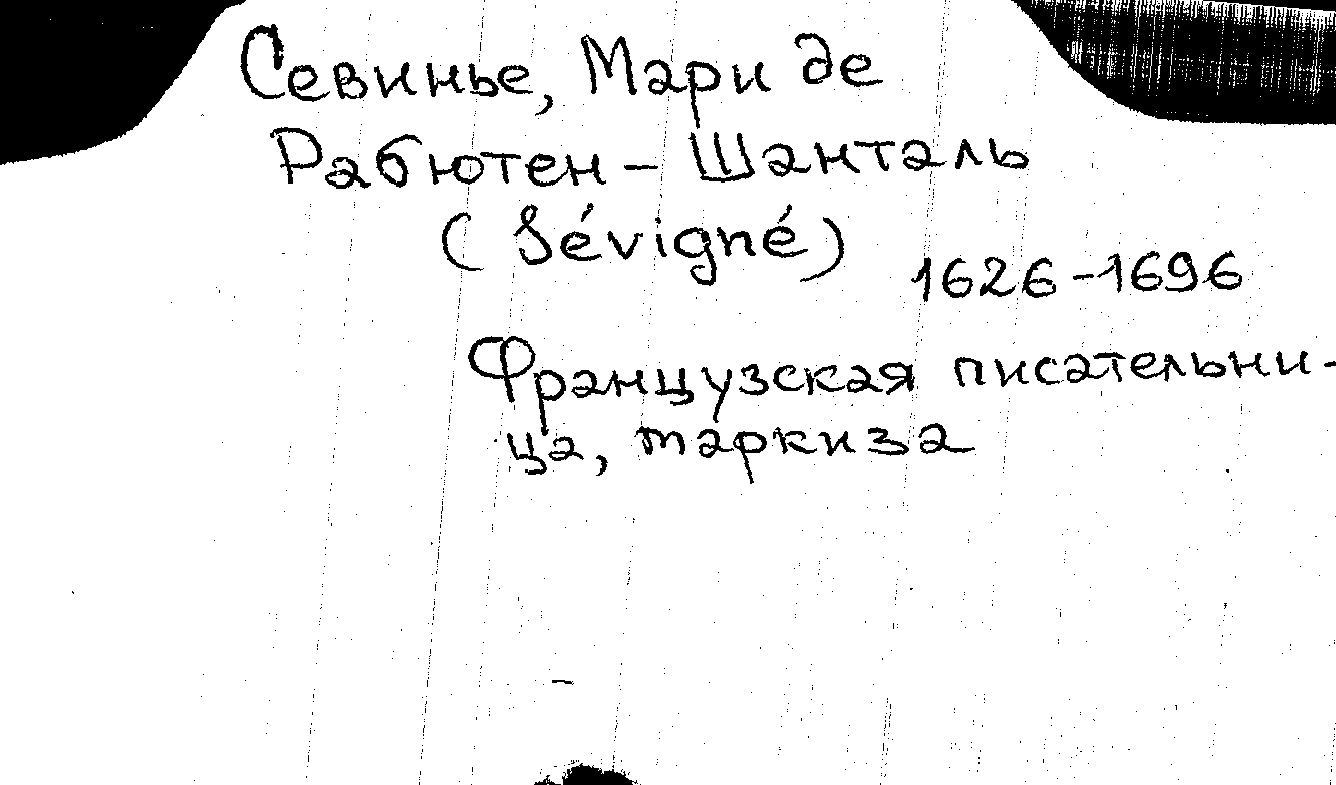 Севинье, Мари де
Рабютен-Шанталь
(Sévigné)
1626-1696
Французская писательни-
ца, маркиза